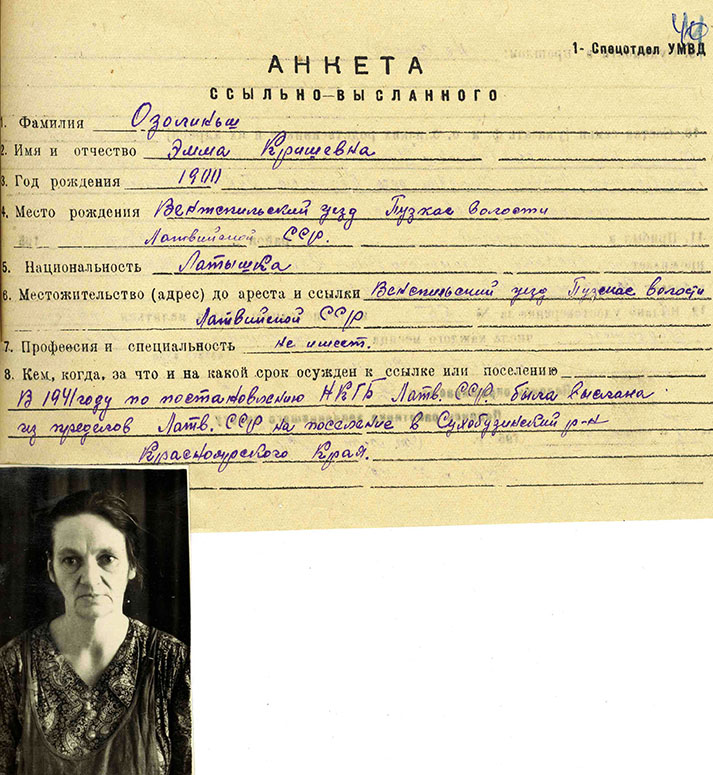 1- Спецотдел УМВД
АНКЕТА
ССЫЛЬНО-ВЫСЛАННОГО
1. Фамилия Озолиньш
2. Имя и отчество Эмма Кришевна
3. Год рождения
4. Место рождения Вентспильский уезд Пузкас волости
Латвийской ССР.
5. Национальность Латышка
6. Местожительство (адрес) до ареста и ссылки Вентспильский уезд Пузскас волости
Латвийской ССР
7. Профессия и специальность не имеет.
8. Кем, когда, за что и на какой срок осужден к ссылке или поселению
В 1941 году по постановлению НКГБ Латв. ССР. была выслана
из пределов Латв. ССР на поселение в Сухобузинский р-н
Красноярского Края.